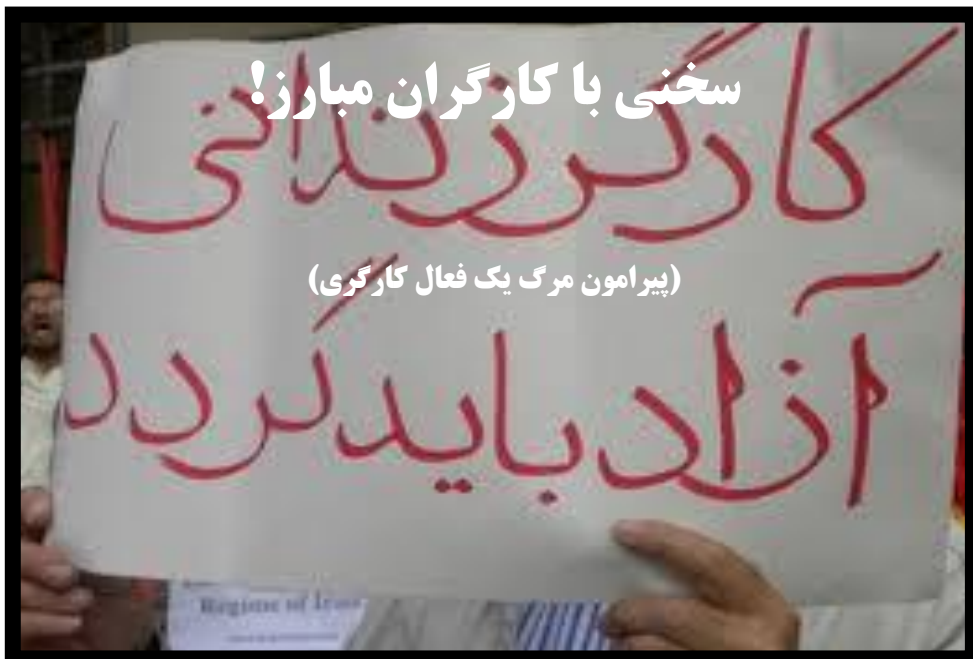 سخنی با کارگران مبارز!
کارگر زندانی
(پیرامون مرگ یک فعال کارگری)
آزاد باید گردد
Regime of Iran